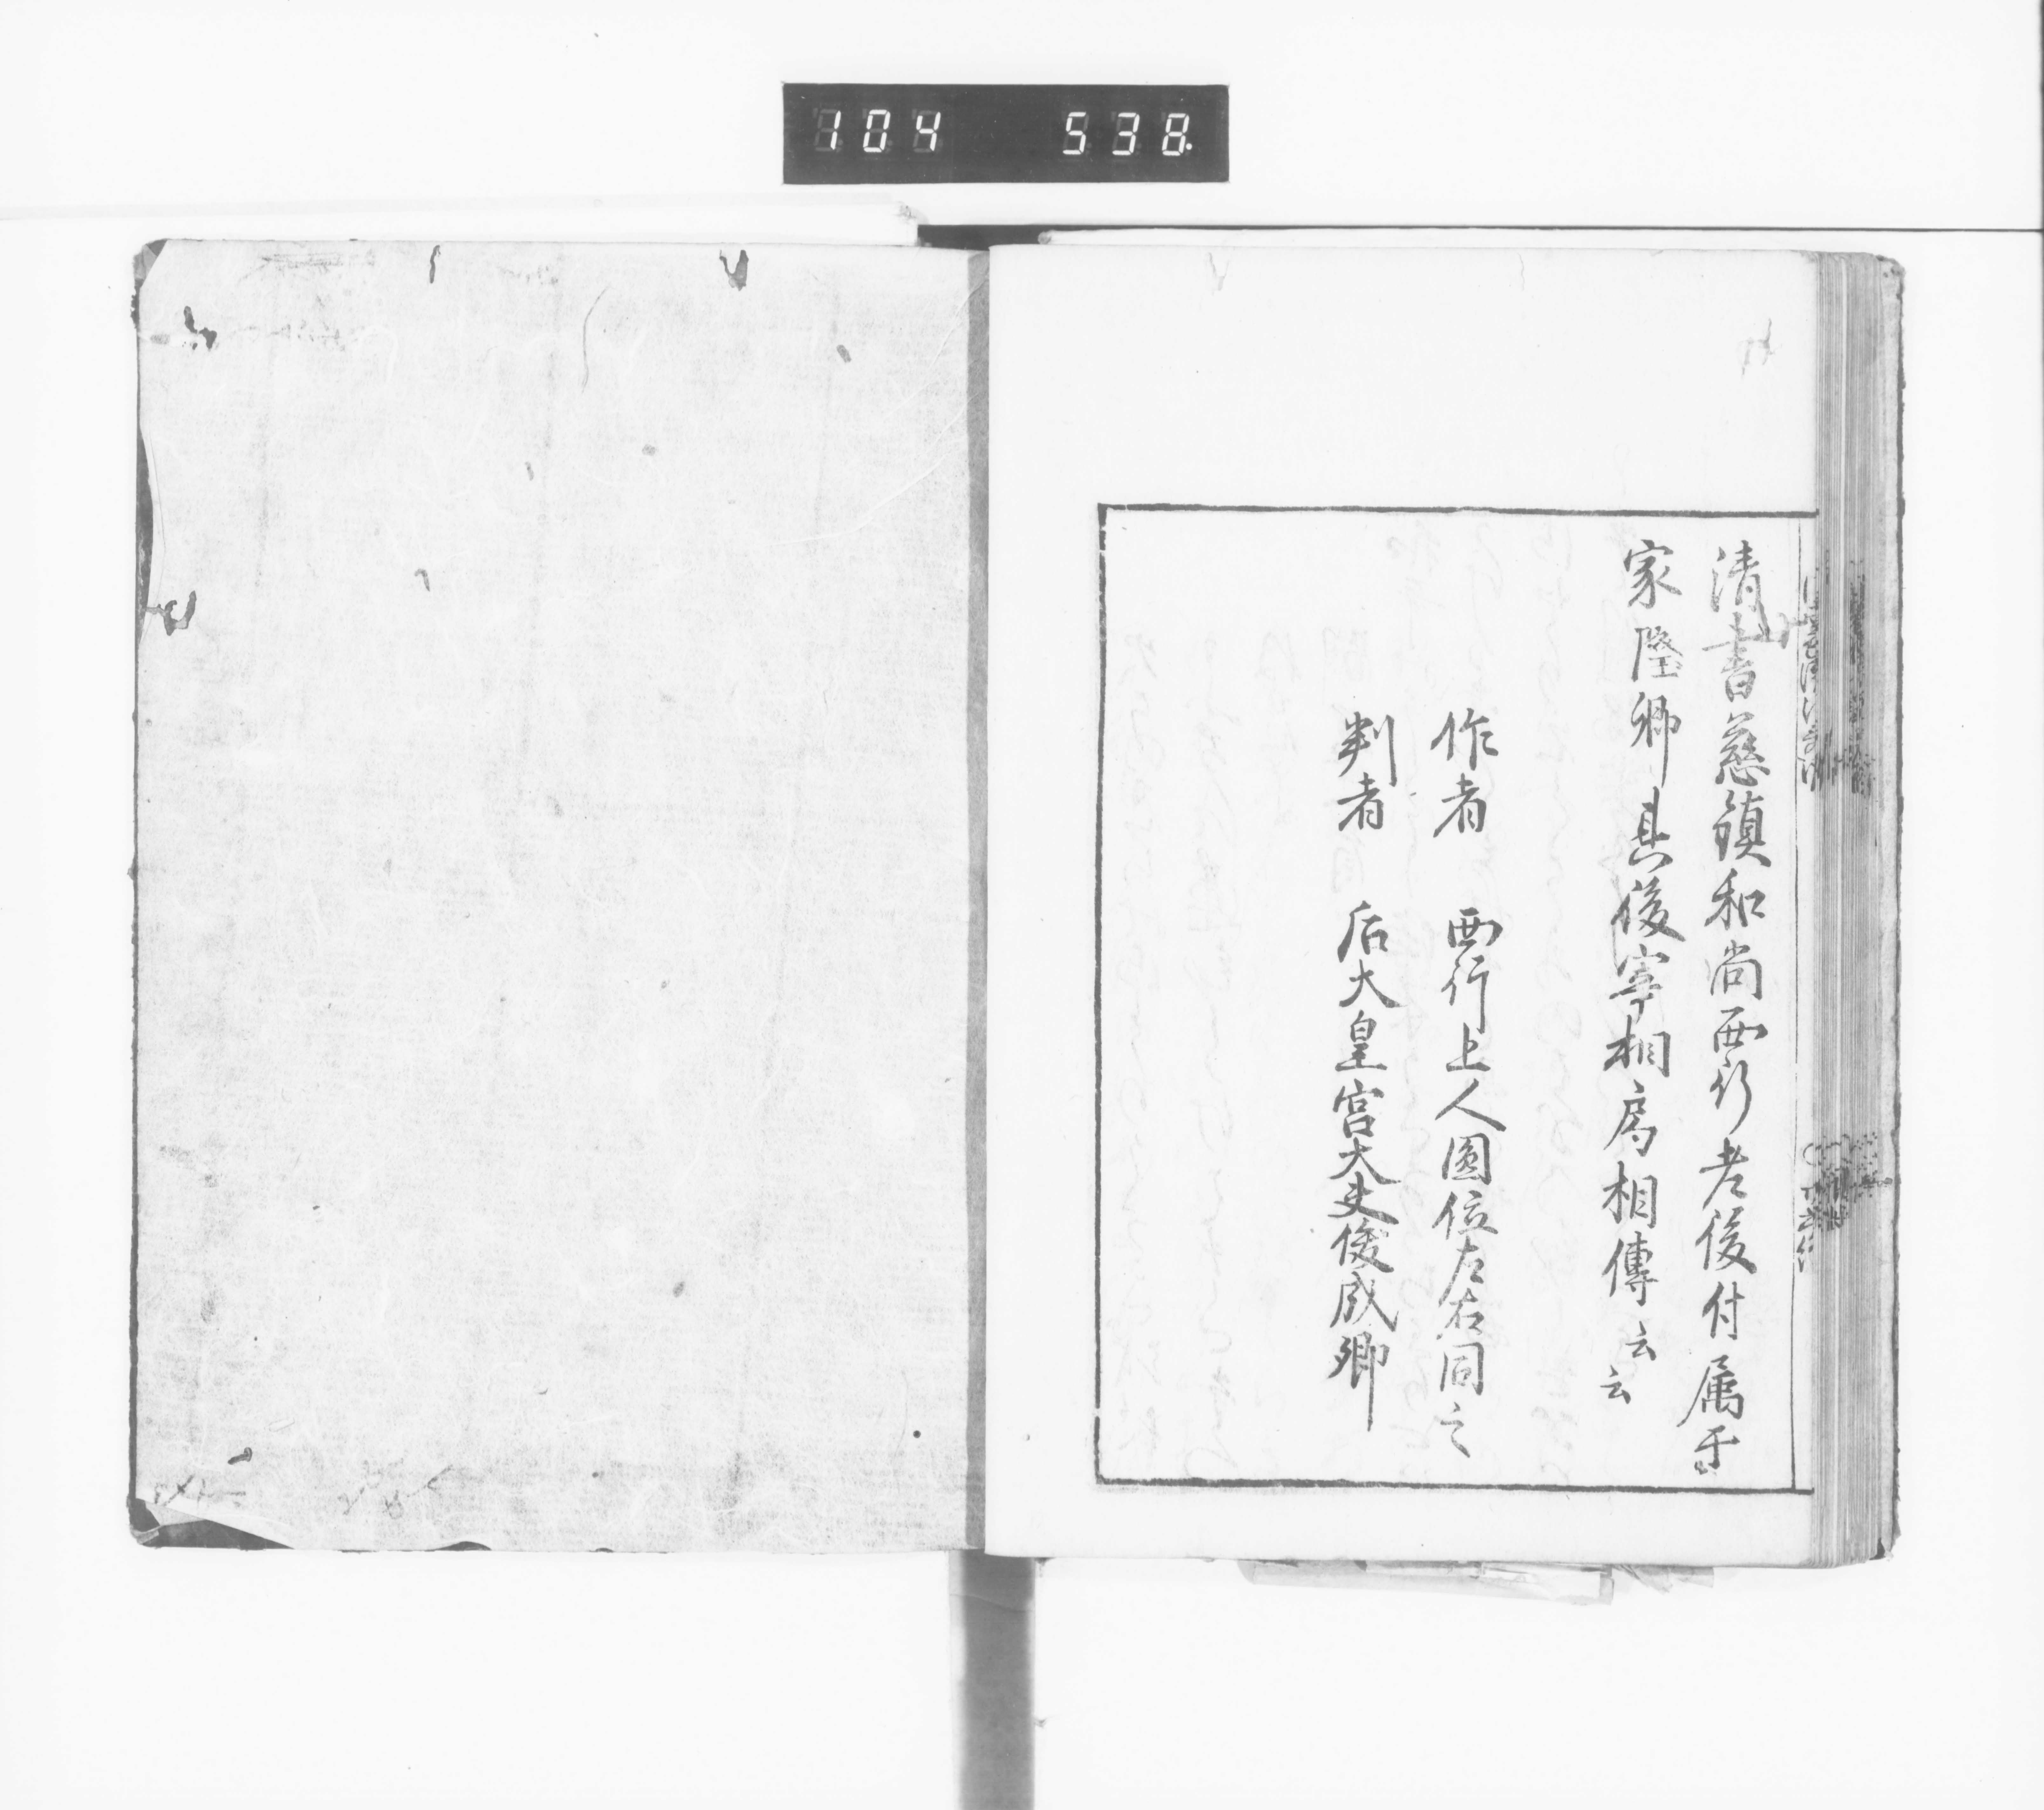 104 538
清書慈鎮和尚西行老後付属于
家隆卿其後宰相局相傳云云
作者 西行上人圓位左右同之
判者 后大皇宮大夫俊成卿